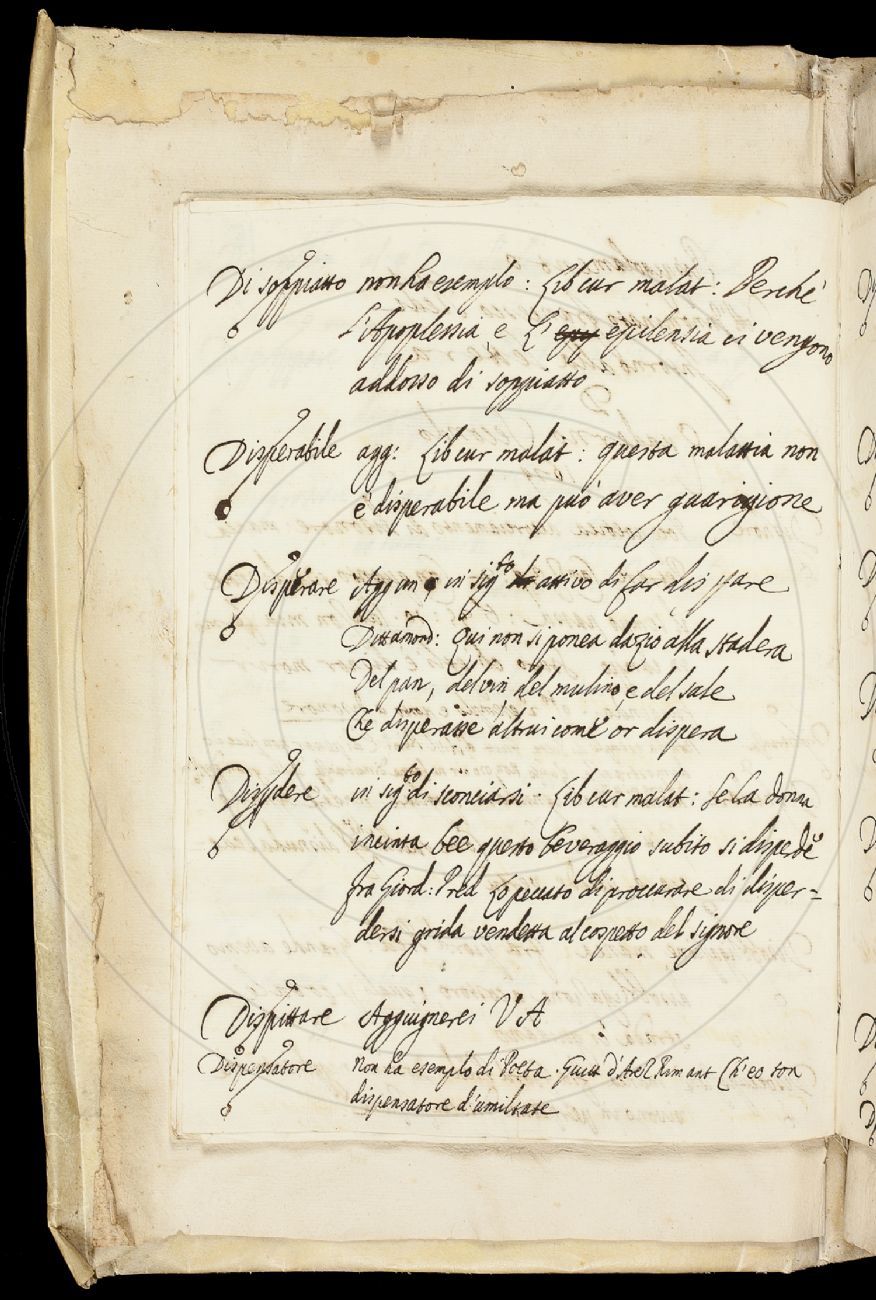 Di soppiatto non ha esemplo : Lib cur malat : Perché
L'Apoplessia, e L'epy epilensia ci vengono
addosso di soppiatto
Disperabile agg: Lib cur malat : questa malattia non
é disperabile ma può aver guarigione
Disperare Aggiun in sig.to di attivo di far disperare
Dittamond: Qui non si ponea dazio alla stadera
Del pan, del vin del mulino, e del sale
Che disperasse altrui come or dispera
Disperdere in sig.to di sconciarsi. Lib cur malat: Se la donna
incinta bee questo beveraggio subito si disperde
fra Giord: Pred Lo peccato di proccurare di disper=
dersi grida vendetta al cospetto del signore
Dispittare Aggiugnerei V A
Dispensatore Non ha esemplo di Poeta. Guitt d'Arez Rimant Ch'eo son
dispensatore d'umiltate